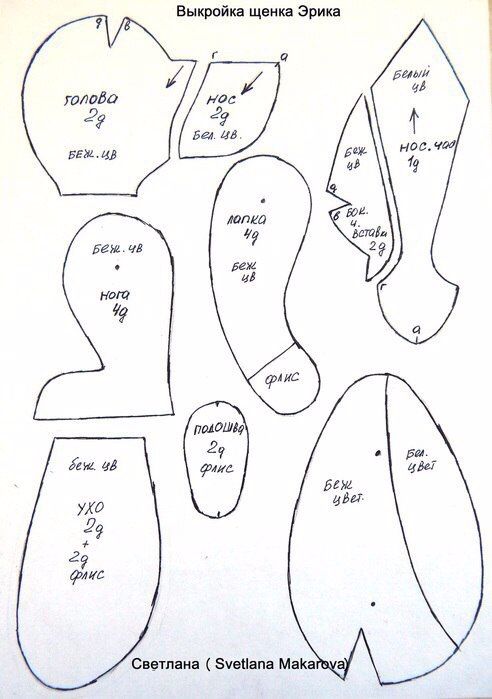 Выкройка щенка Эрика
g в
голова
2g
беж. цв
г а
нос
2g
бел. цв.
белый
цв
нос. час
1g
г
а
беж
цв
g
в
бок.
ч.
вставка
2g
лапка
4g
беж
цв
флис
беж. цв
нога
4g
подошва
2g
флис
беж цв
ухо
2g
+
2g
флис
беж
цвет.
бел.
цвет
Светлана ( Svetlana Makarova)